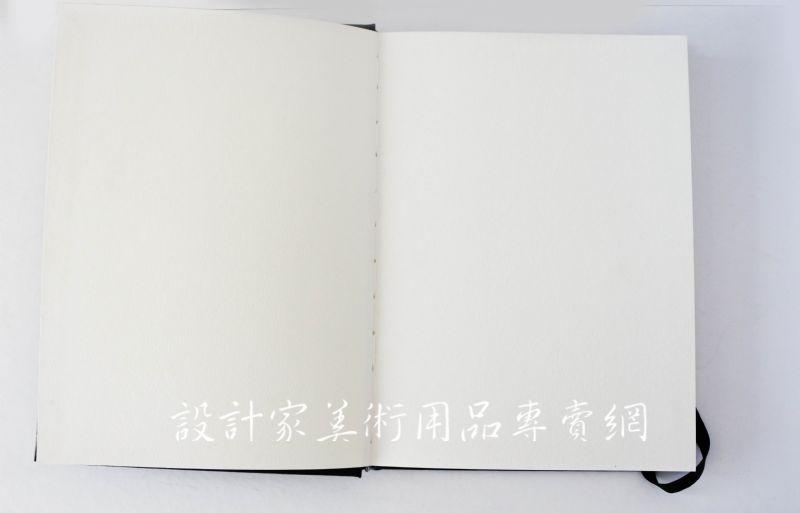 設計家美術用品專賣網